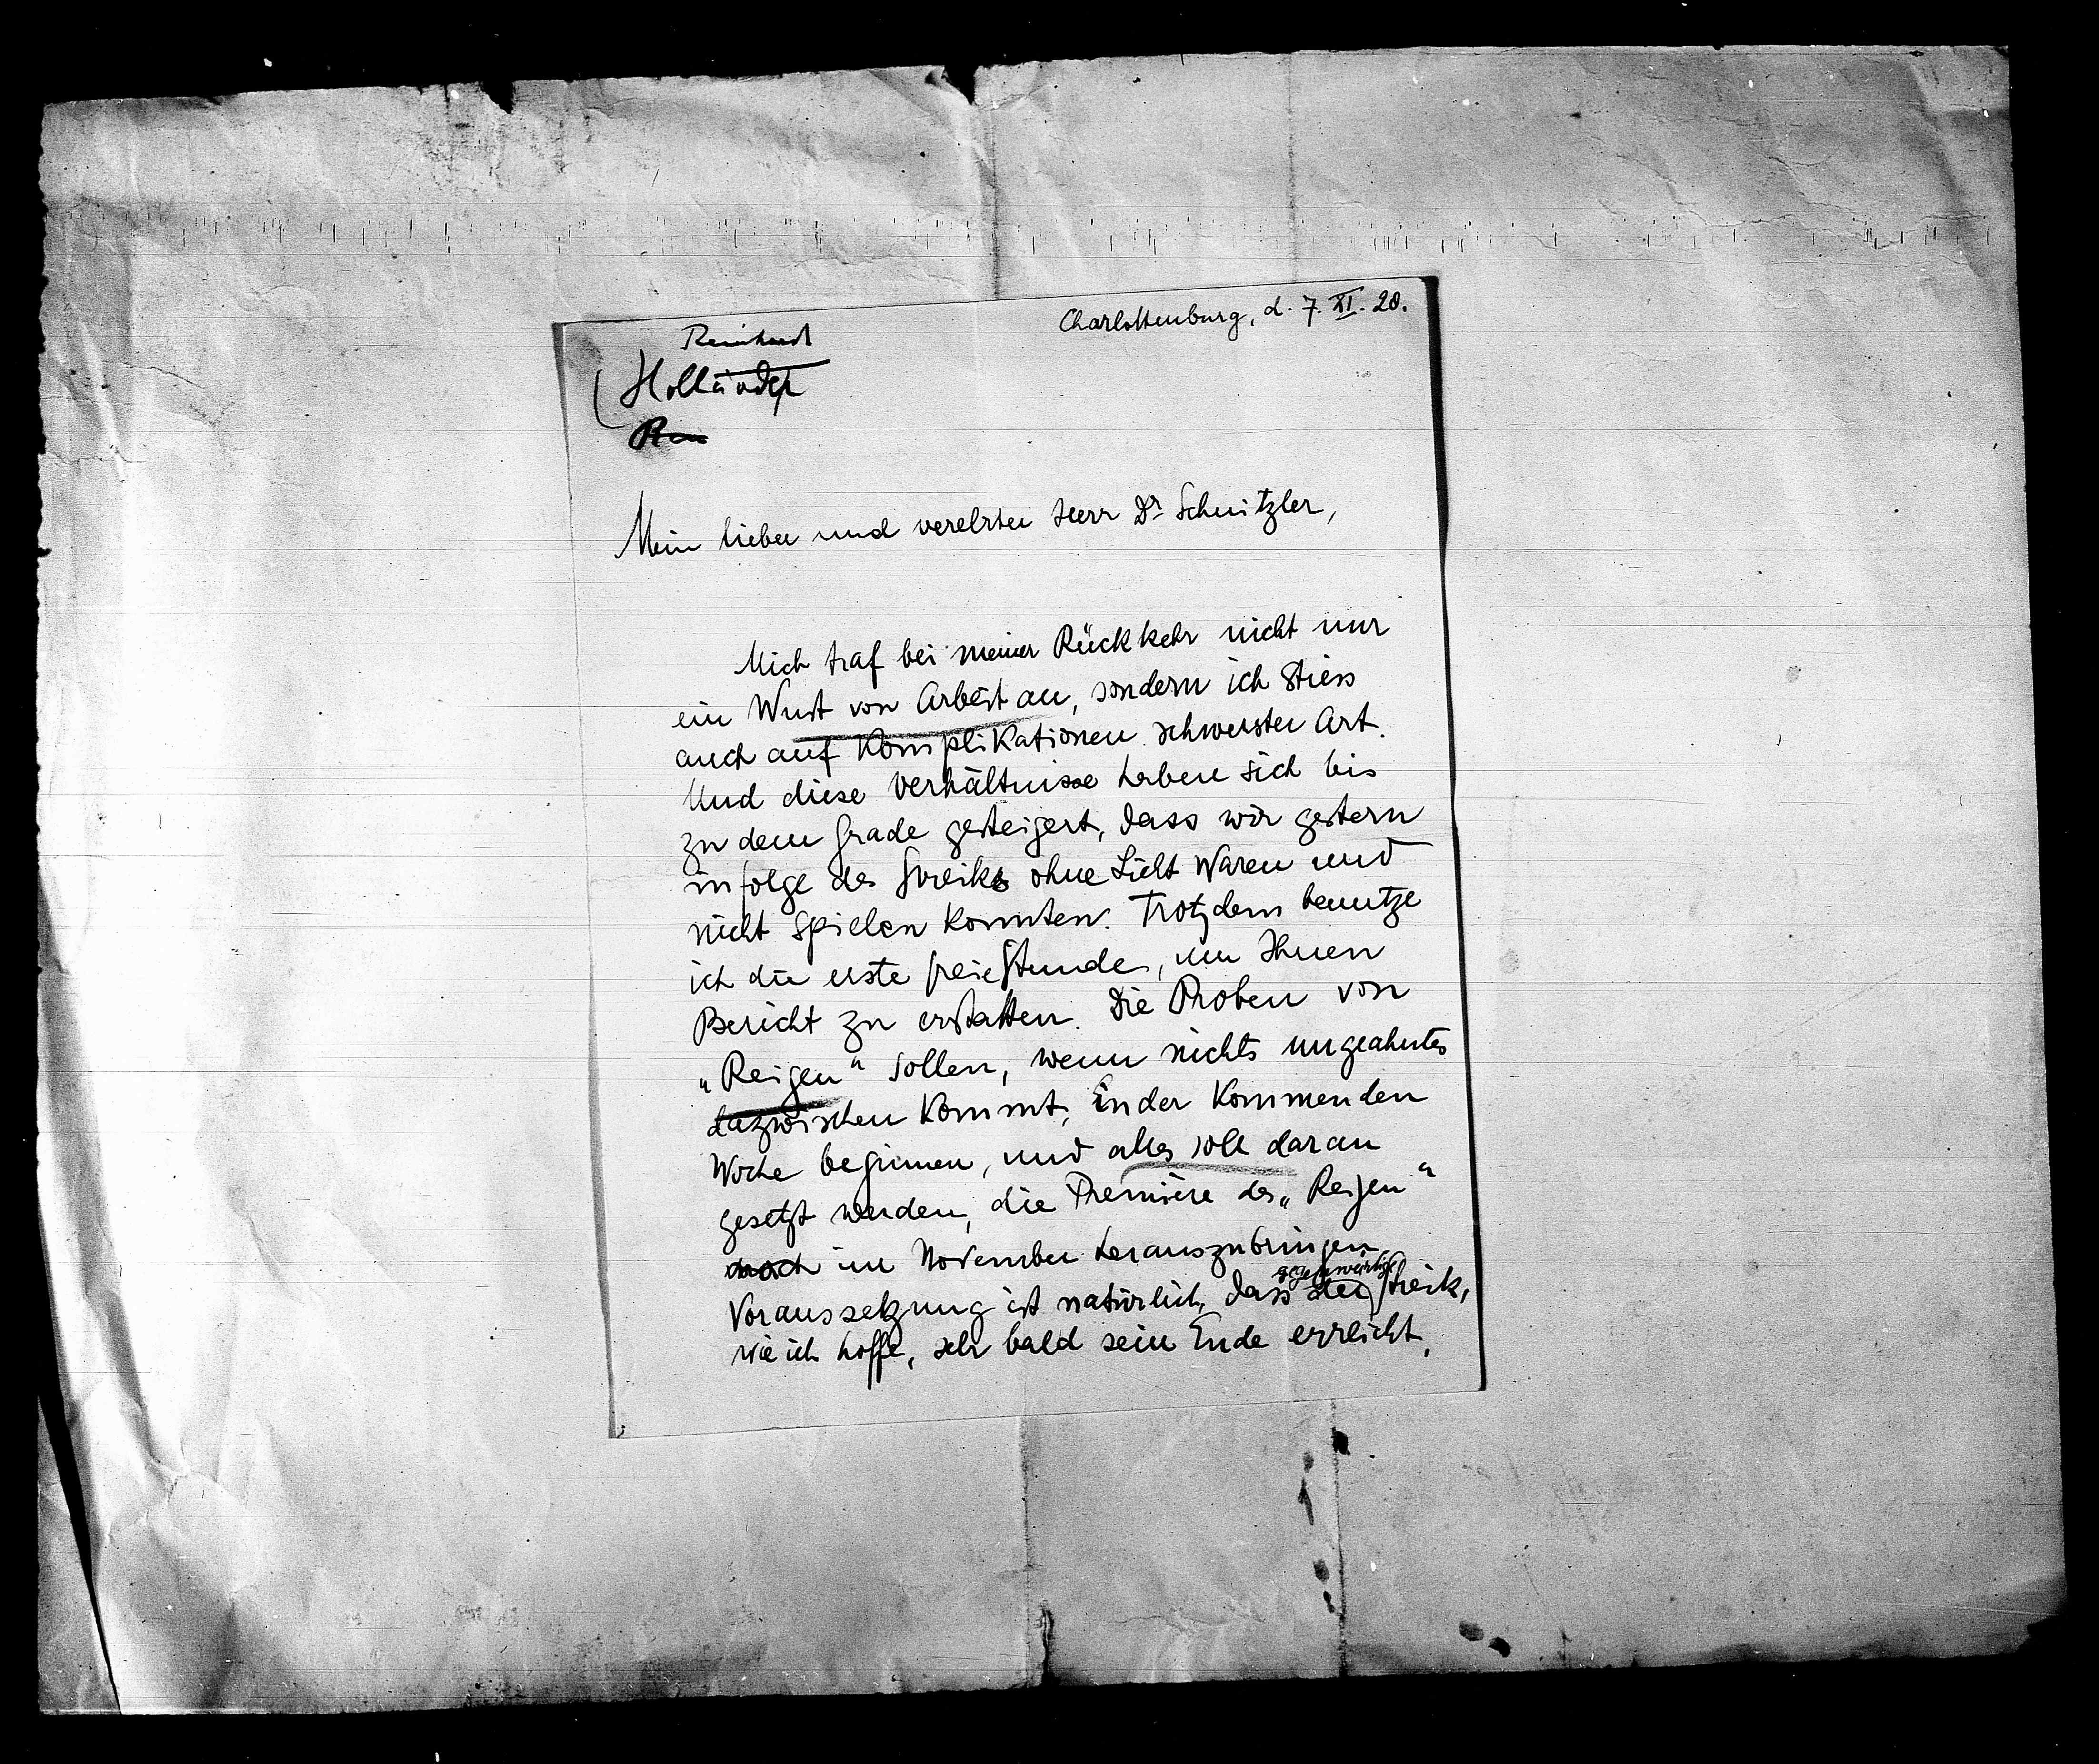 Charlottenburg, d. 7. XI. 20.
Reinhardt
Holländer
Mein lieber und verehrter Herr Dr Schnitzler,
Mich traf bei meiner Rückkehr nicht nur
ein Wust von Arbeit an, sondern ich stiess
auch auf Komplikationen schwerster Art.
Und diese Verhältnisse haben sich bis
zu dem Grade gesteigert, dass wir gestern
infolge des Streiks ohne Licht waren und
nicht spielen konnten. Trotzdem benutze
ich die erste freie Stunde, um Ihnen
Bericht zu erstatten. Die Proben von
„Reigen“ sollen, wenn nichts ungeahntes
dazwischen kommt, in der kommenden
Woche beginnen, und alles soll daran
gesetzt werden, die Premiere des „Reigen“
noch im November herauszubringen.
Voraussetzung ist natürlich, dass der gegenwärtige Streik,
wie ich hoffe, sehr bald sein Ende erreicht.